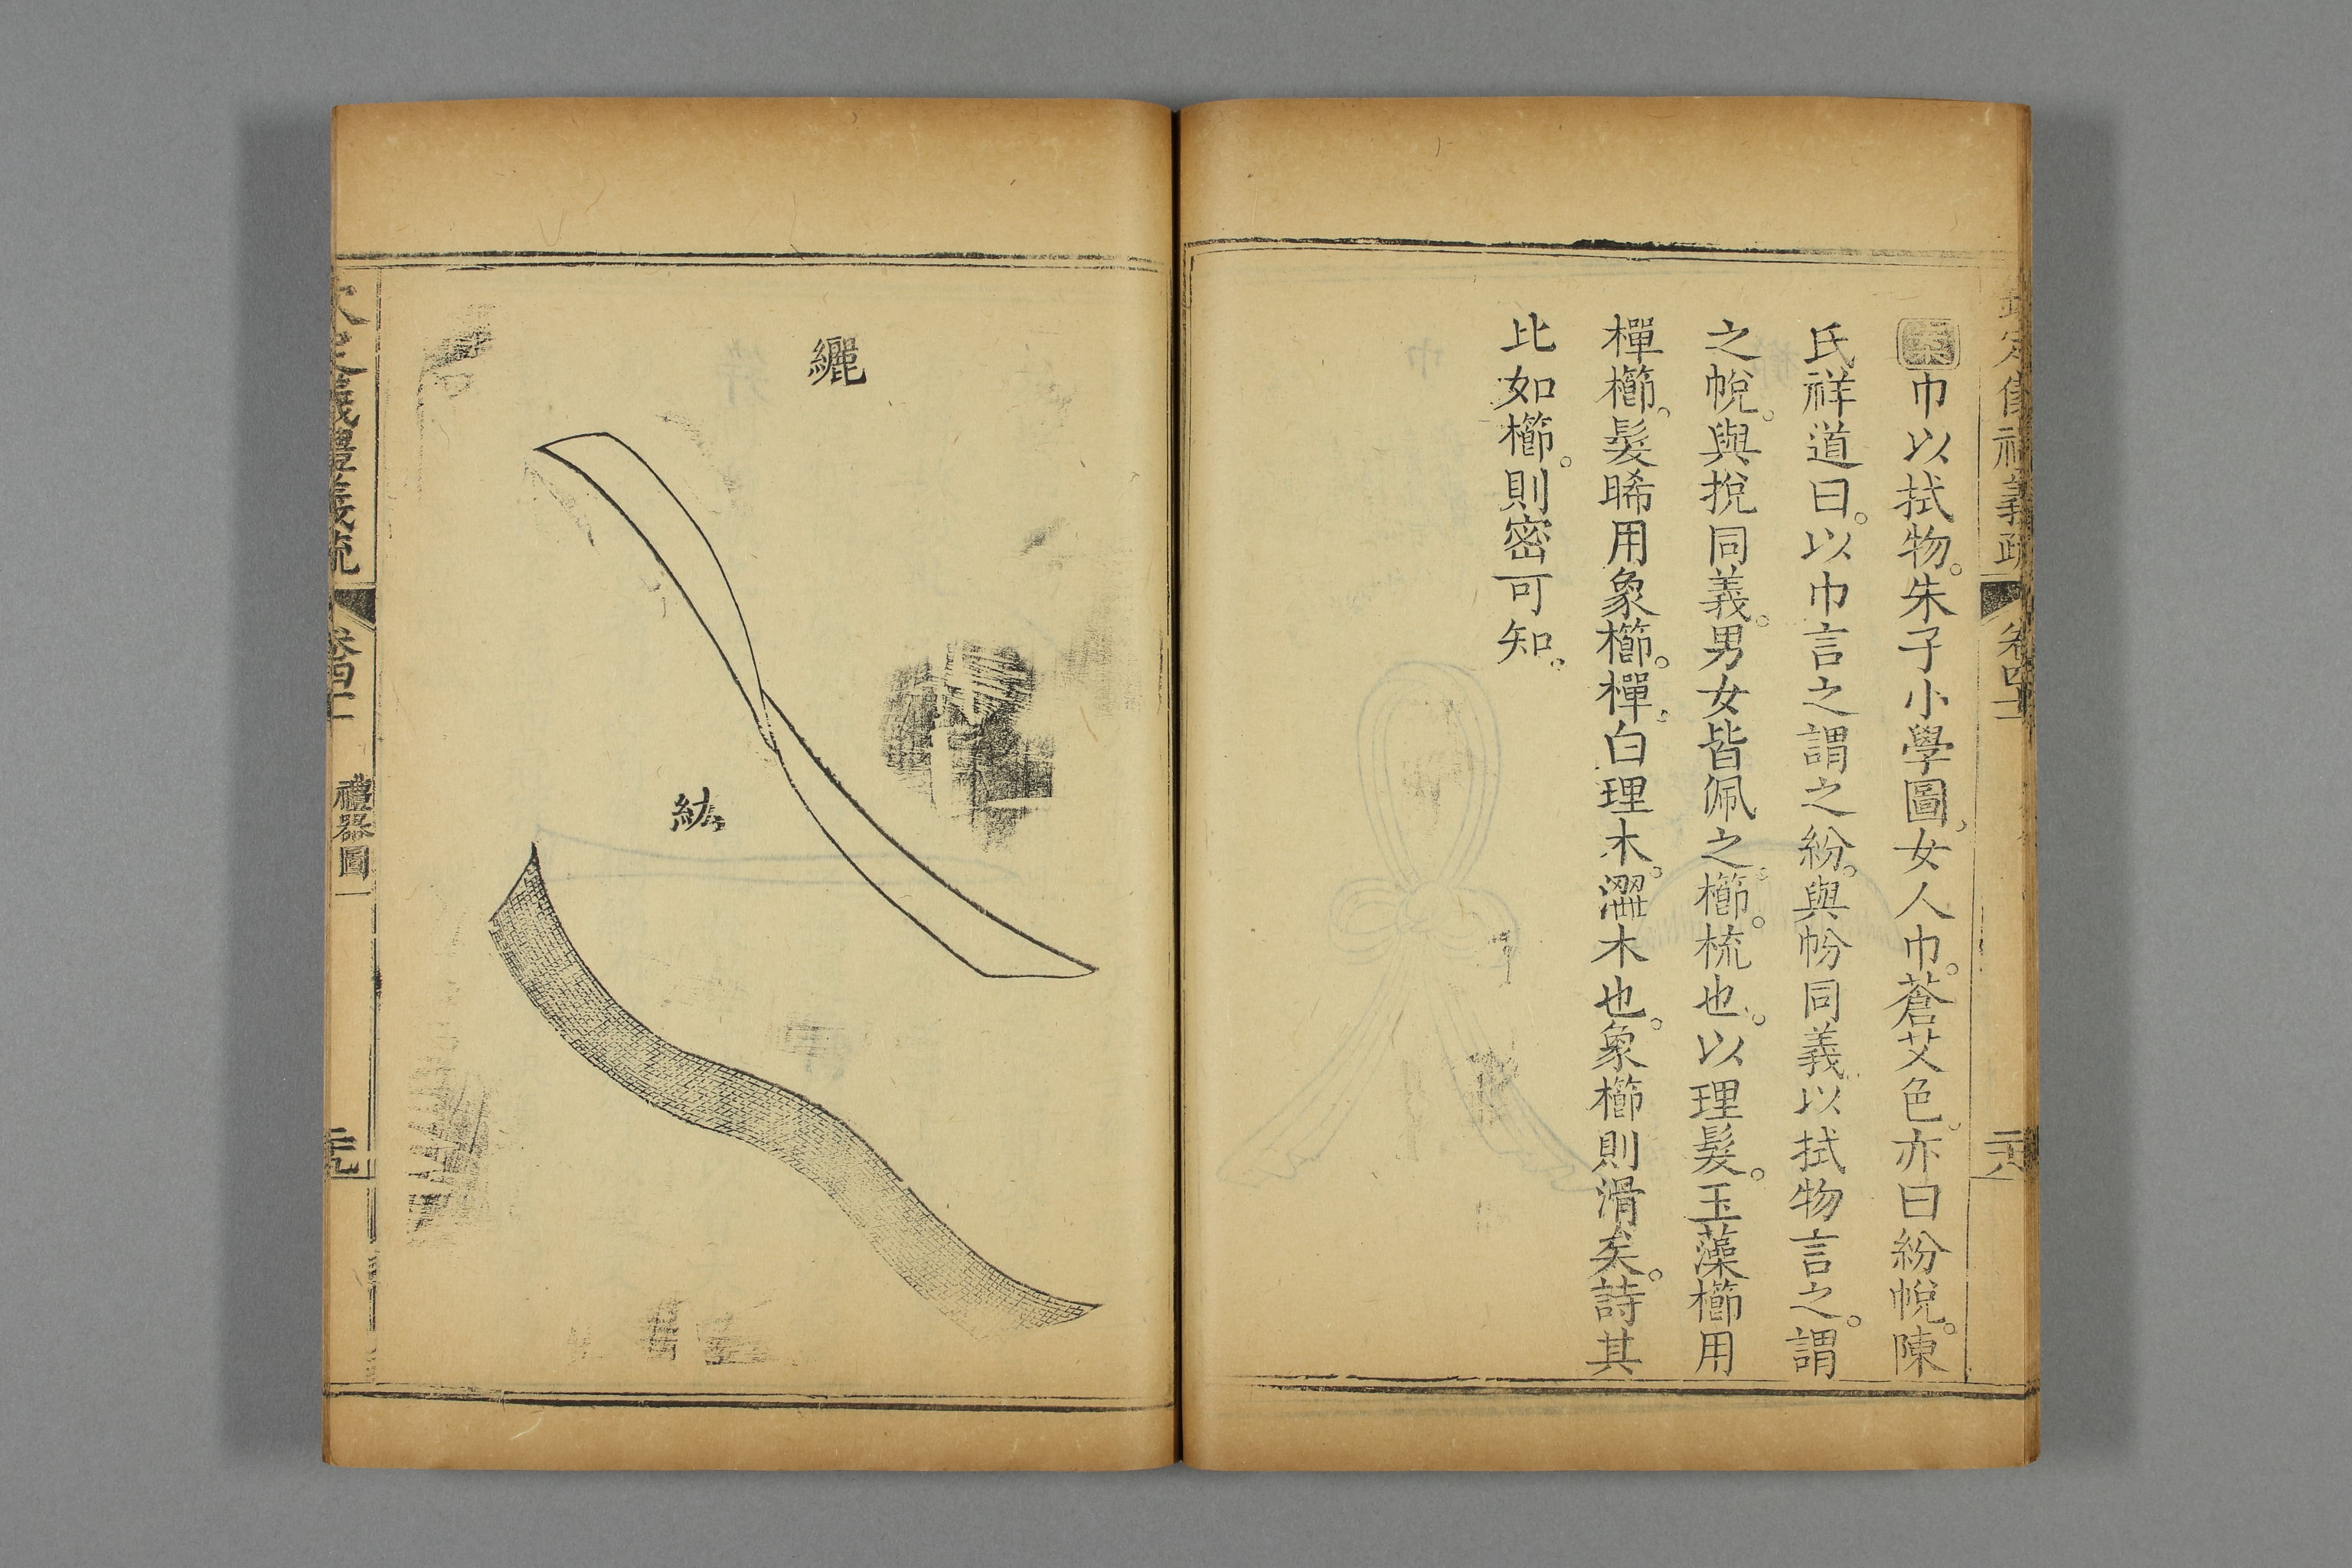 欽定儀禮義疏 卷四十一 二十八
案巾以拭物。朱子小學圖、女人巾。蒼艾色、亦曰紛帨。陳
氏祥道曰。以巾言之謂之紛。與帉同義以拭物言之。謂
之帨。與挩同義。男女皆佩之。櫛。梳也。以理髮。玉藻櫛用
樿櫛。髮晞用象櫛。樿。白理木。澀木也。象櫛則滑矣。詩其
比如櫛。則密可知。
纚
紘
禮器圖